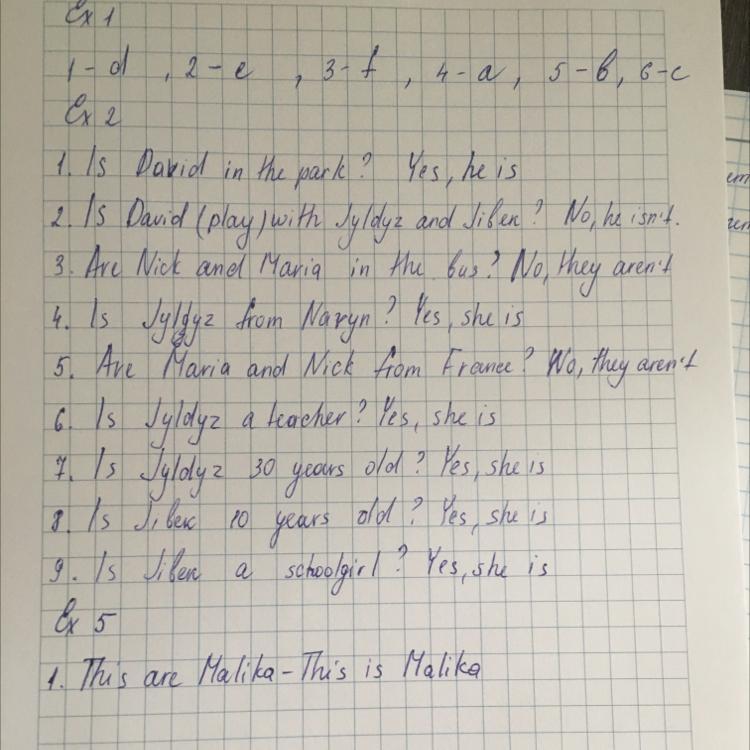 Ex 1
1-d , 2-e , 3-f , 4-a , 5-b, 6-c
Ex 2
1. Is David in the park? Yes, he is
2. Is David (play) with Jyldyz and Jibek? No, he isn't.
3. Are Nick and Maria in the bus? No, they aren't
4. Is Jyldyz from Naryn? Yes, she is
5. Are Maria and Nick from France? No, they aren't
6. Is Jyldyz a teacher? Yes, she is
7. Is Jyldyz 30 years old? Yes, she is
8. Is Jibek 10 years old? Yes, she is
9. Is Jibek a schoolgirl? Yes, she is
Ex 5
1. This are Malika - This is Malika